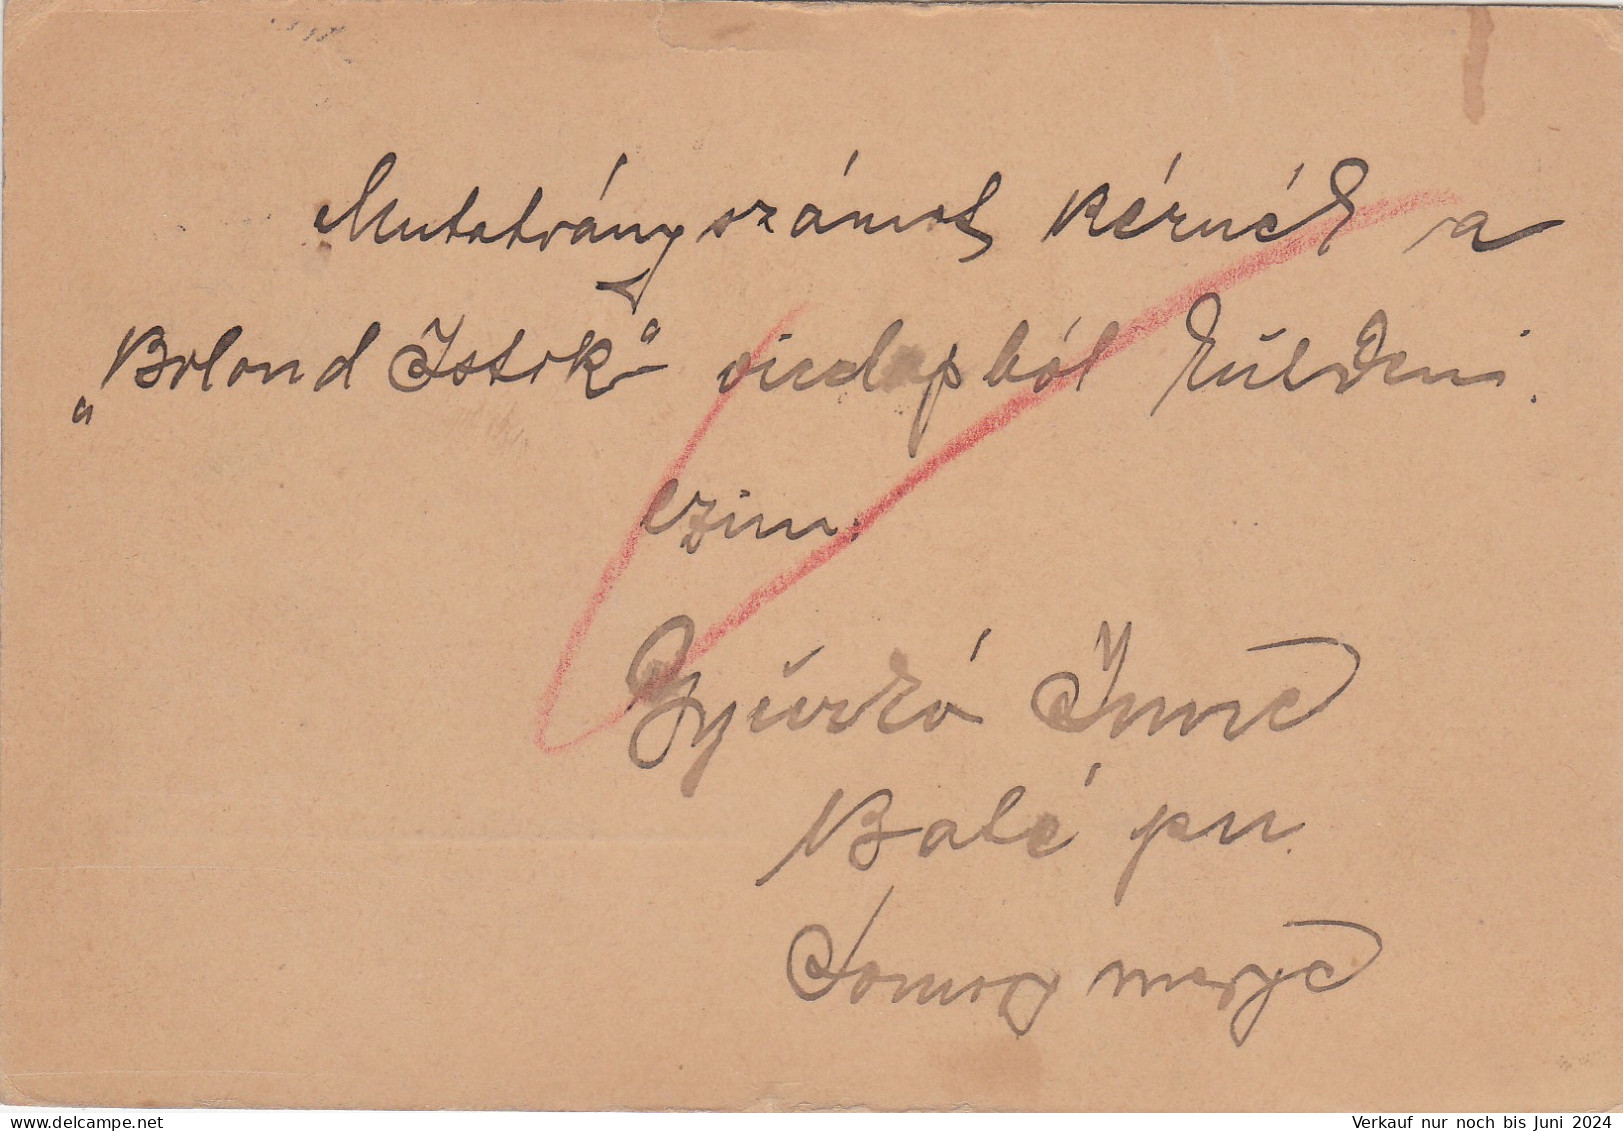 Mutatványszámot kérnék a
„Bolond Istók“ viclapból küldeni.
czim.
Gyurkó Imre
Baté pu.
Somogy megye
delcampe.net
Verkauf nur noch bis Juni 2024